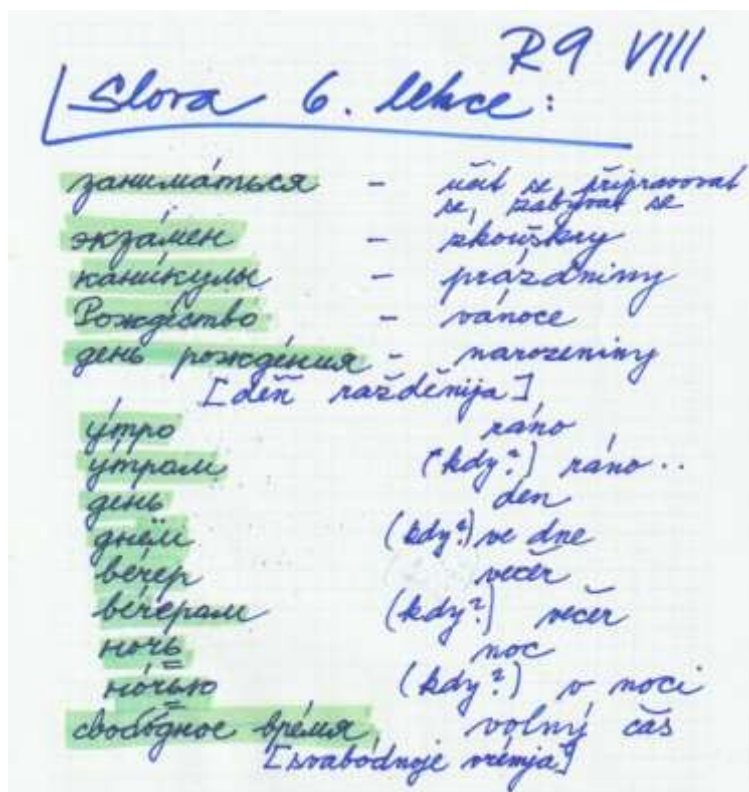 R9 VIII.
Slova 6. lekce:
занима́ться – učit se, připravovat
se, zabývat se
экза́мен – zkoušky
кани́кулы – prázdniny
Рождество́ – vánoce
день рожде́ния – narozeniny
[děňražděnija]
у́тро ráno
у́тром (kdy?) ráno..
день den
днём (kdy?) ve dne
ве́чер večer
ве́чером (kdy?) večer
ночь noc
но́чью (kdy?) v noci
свобо́дное вре́мя volný čas
[svabódnoje vrémja]